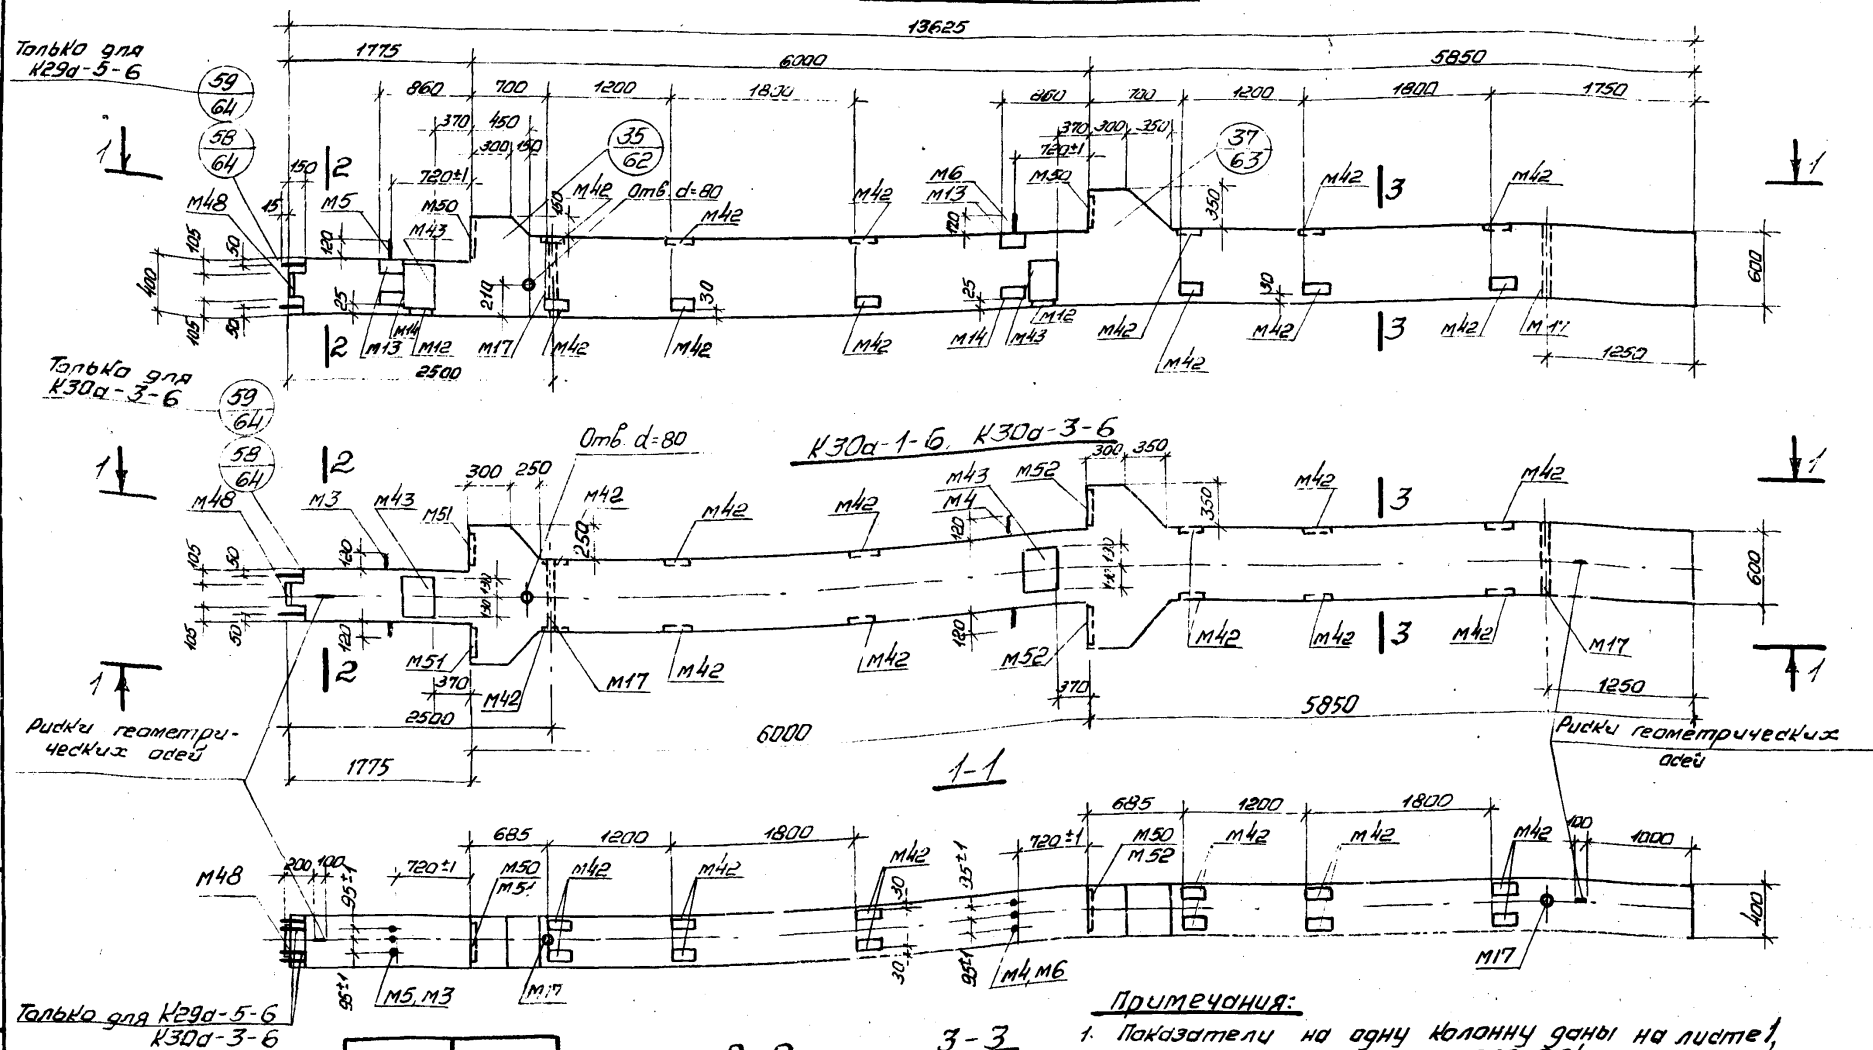 13625
1775
6000
5850
Только для
К29а-5-6
59
64
58
64
860
700
1200
1800
860
700
1200
1800
1750
370
450
300
150
370
300
350
35
62
37
63
1
2
150
720±1
М42
Отв d=80
720±1
М6
М13
М50
М42
3
М42
1
М48
15
М5
М50
М43
150
М42
М42
120
350
105
50
120
400
25
210
30
25
30
600
105
50
2
М13
М14
М12
М17
М42
М42
М42
М14
М43
М12
М42
М42
М42
3
М42
М17
2500
1250
Только для
К30а-3-6
59
64
58
64
Отв. d=80
К30а-1-6, К30а-3-6
300
350
1
2
300
250
М43
М52
М42
3
М42
1
М48
М3
М43
М51
М42
250
М42
М42
М4
120
350
105
50
120
130
130
130
600
105
50
120
120
2
М51
М42
М17
М42
М42
М52
М42
М42
3
М42
М17
1
370
370
1250
1
2500
6000
5850
1775
Риски геометри-
ческих осей
Риски геометрических
осей
1-1
685
1200
1800
685
1200
1800
М48
200
100
95±1
720±1
М50
М51
М42
М42
М42
30
95±1
720±1
М50
М52
М42
М42
М42
100
1000
400
95±1
М5, М3
М17
30
95±1
М4, М6
М17
Только для К29а-5-6
К30а-3-6
3-3
Примечания:
1. Показатели на одну колонну даны на листе 1,